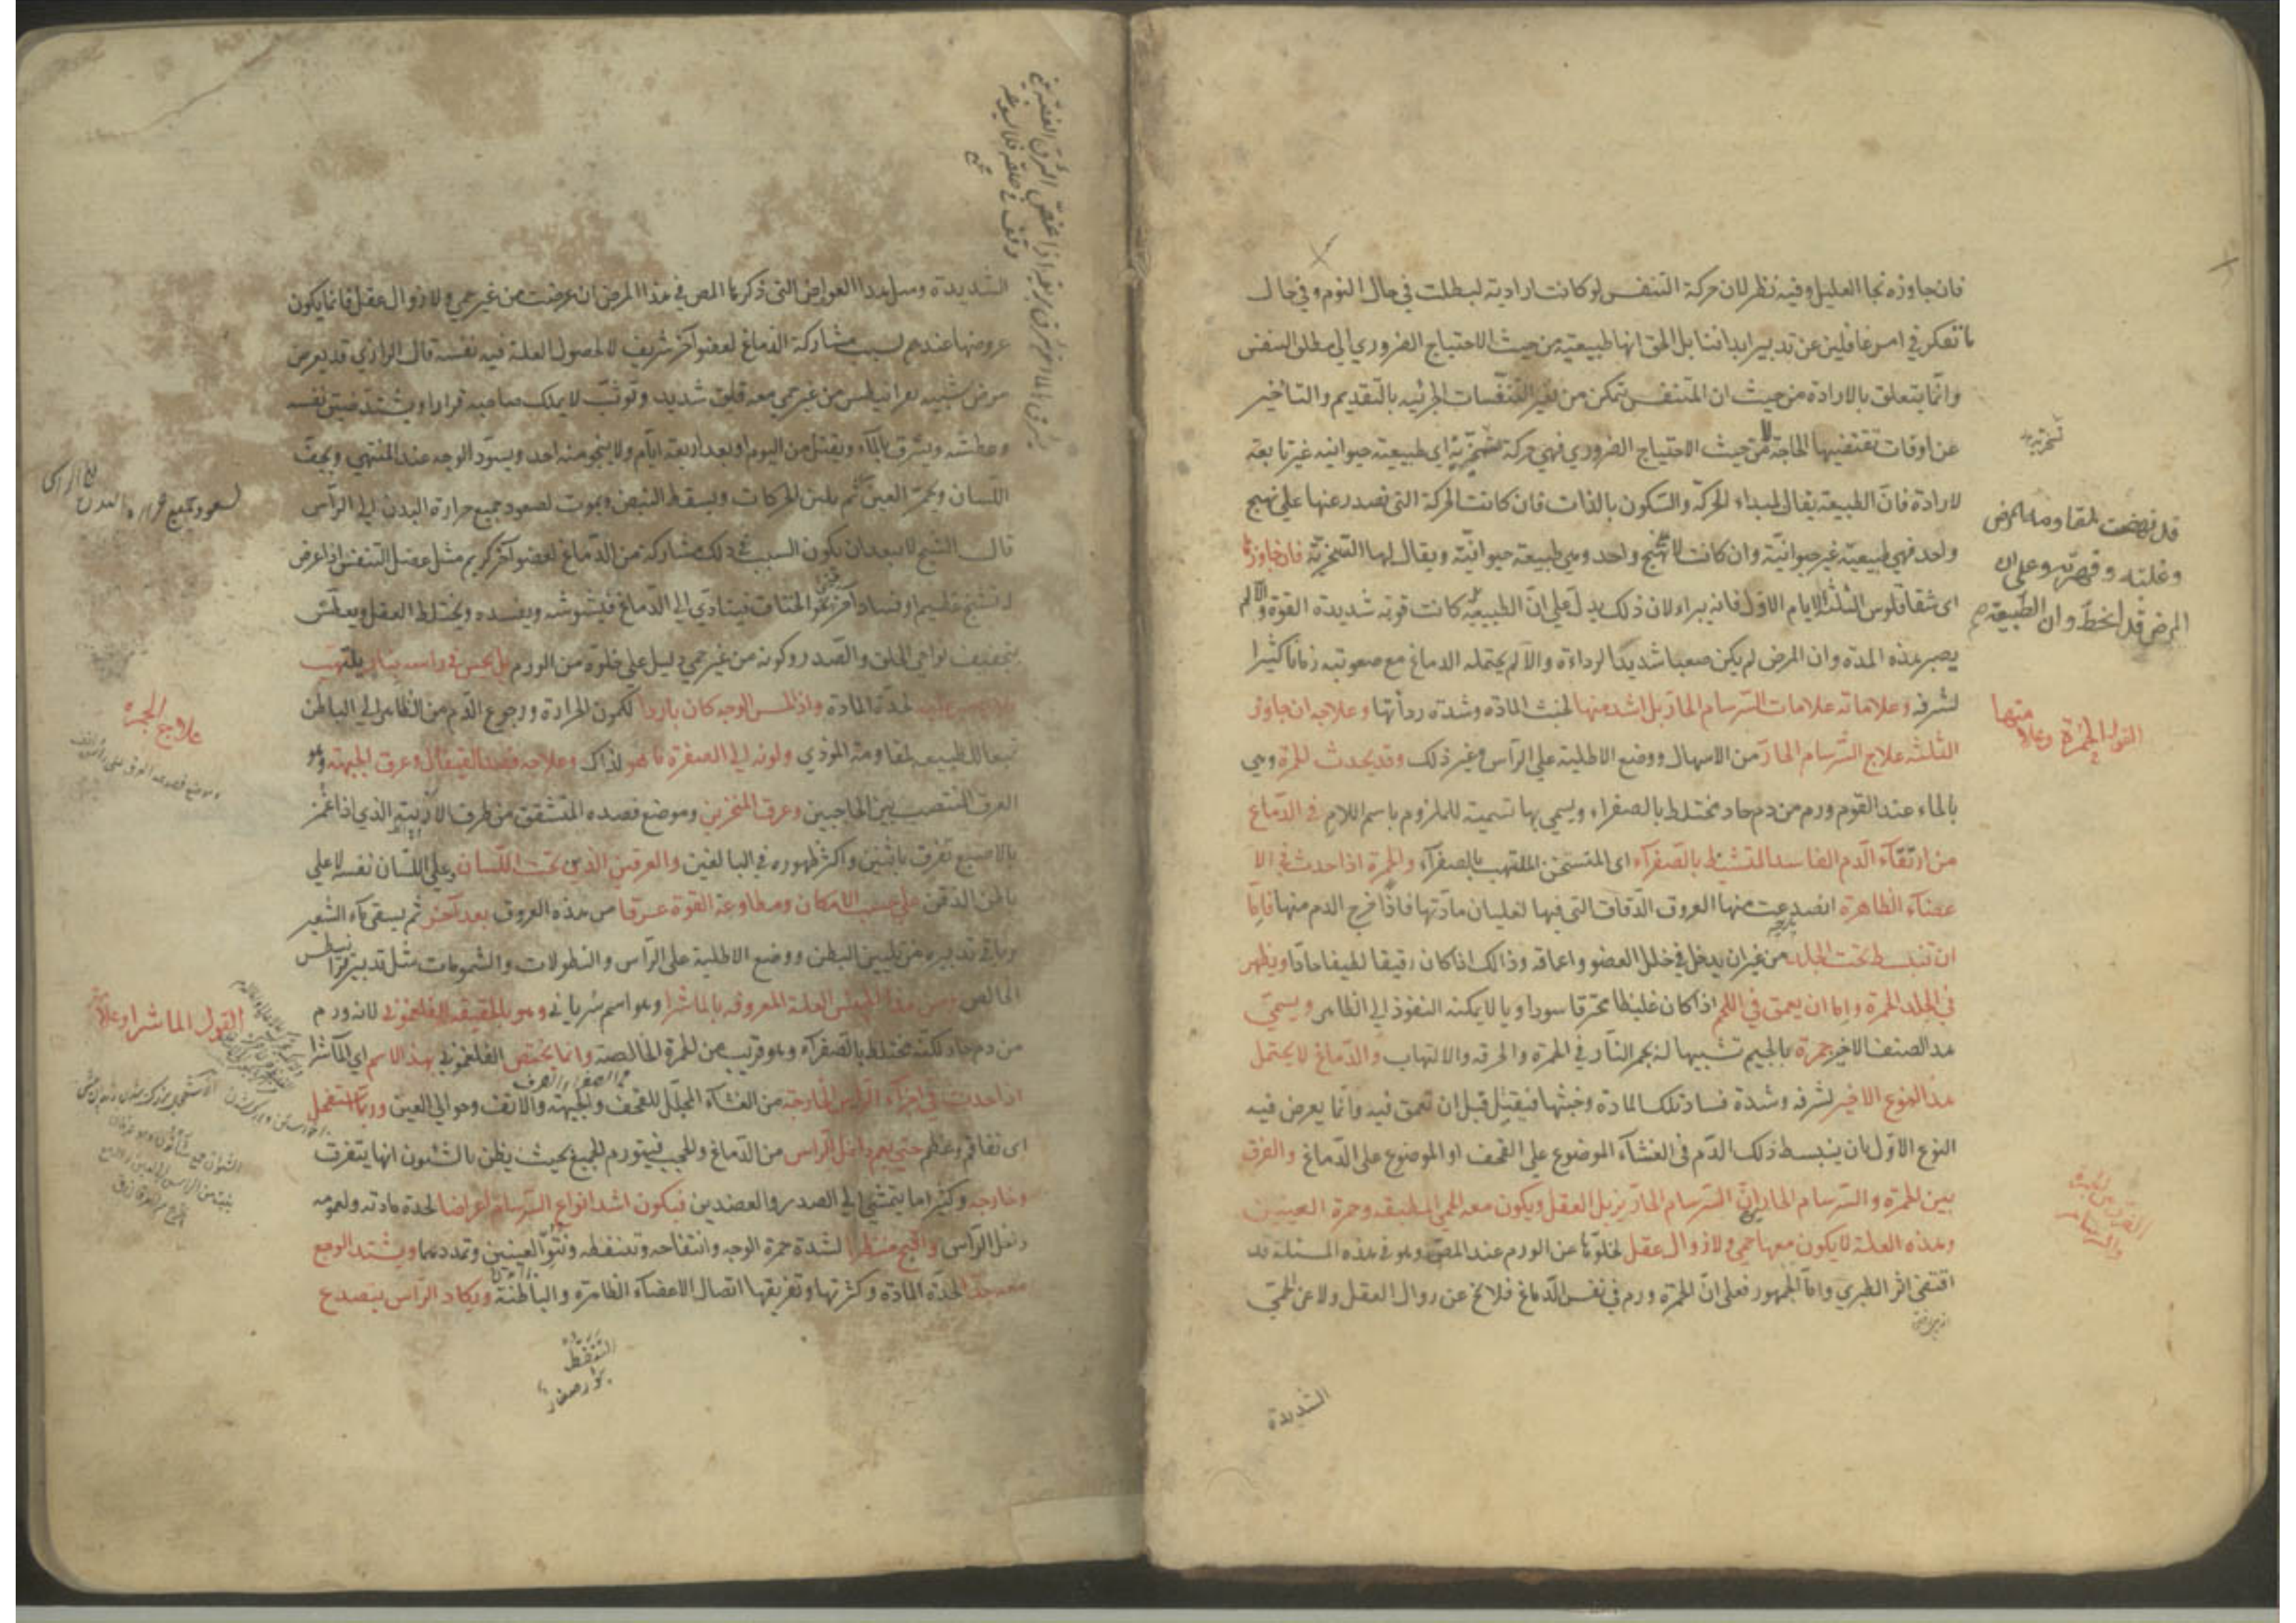 فان جاوزه نجا العليل وفيه نظر لان حركة التنفس لو كانت ارادية لبطلت في حال النوم وفي حال
ما نفكر في امر غافلين عن تدبير ابداننا بل الحق انها طبيعية من حيث الاحتياج الضروري الى مطلق التنفس
وانما يتعلق بالارادة من حيث ان المتنفس يتمكن من تغير التنفسات الجزئية بالتقديم والتاخير
عن اوقات تقتضيها الحاجة لا من حيث الاحتياج الضروري فهي حركة تسخرية اي طبيعية حيوانية غير تابعة
تسخرية
لارادة فان الطبيعة يقال لمبداء الحركة والسكون بالذات فان كانت الحركة التي تصدر عنها على نهج
واحد فهي طبيعية غير حيوانية وان كانت لا نهج واحد وهي طبيعة حيوانية ويقال لها التسخرية فان جاوزها
اى شقاقلوس الثلث الايام الاول فانه يبراء لان ذلك يدل على ان الطبيعة كانت قوية شديدة القوة والا لم
قد نهضت لمقاومة المرض
وغلبته وقهرته وعلى ان
المرض قد انحط وان الطبيعة
يصبر هذه المدة وان المرض لم يكن صعبا شديد الرداءة والا لم يحتمله الدماغ مع صعوبته زمانا كثيرا
لشرفه وعلاماته علامات السرسام الحار بل اشد منها لخبث المادة وشدة رداتها وعلاجه ان جاوز
القول الحمرة وعلامتها
الثلثة علاج السرسام الحار من الاسهال ووضع الاطلية على الراس وغير ذلك وقد يحدث الحمرة وهي
بالحاء عند القوم ورم من دم حاد مختلط بالصفراء ويسمى بها تسمية للملزوم باسم اللازم في الدماغ
من ارتقاء الدم الفاسد المتشيط بالصفراء اى المتسخن الملتهب بالصفراء والحمرة اذا حدث في الا
عضاء الظاهرة انصدعت منها العروق الدقاق التى فيها لغليان مادتها فاذا خرج الدم منها فاما
ان تنبسط تحت الجلد من غير ان يدخل في خلل العضو واعماقه وذالك اذا كان رقيقا لطيفا حادا ويظهر
في الجلد الحمرة واما ان يعمق في اللحم اذا كان غليظا محترقا سوداويا لا يمكنه النفوذ الى الظاهر ويسمى
هذ الصنف الاخير جمرة بالجيم تشبيها له بجمر النار في الحمرة والحرقة والالتهاب والدماغ لا يحتمل
هذ النوع الاخير لشرفه وشدة فساد تلك المادة وخبثها فيقتل قبل ان تعمق فيه وانما يعرض فيه
النوع الاول بان ينبسط ذلك الدم في الغشاء الموضوع على القحف او الموضوع على الدماغ والفرق
بين الحمرة والسرسام الحار ان السرسام الحار يزيل العقل ويكون معه الحمى المطبقة وحمرة العينين
وهذه العلة لا يكون معها حمى ولا زوال عقل لخلوها عن الورم عند المص وهو في هذه المسئلة قد
اقتفى اثر الطبري واما الجمهور فعلى ان الحمرة ورم في نفس الدماغ فلا يخ عن زوال العقل ولا عن الحمى
الشديدة
الشديدة ومثل هذا العوارض التى ذكرها المص في هذا المرض ان عرضت من غير حمى ولا زوال عقل فانما يكون
عروضها عندهم لسبب مشاركة الدماغ لعضو آخر شريف لا لحصول العلة فيه نفسه قال الرازي قد يعرض
مرض شبيه بقرانيطس من غير حمى معه قلق شديد وتوثب لا يملك صاحبه قرارا ويشتد ضيق نفسه
وعطشه ويشرق بالماء ويقتل من اليوم او بعد اربعة ايام ولا ينجو منه احد ويسود الوجه عند المنتهى ويجف
اللسان وتحمر العين ثم يلين الحركات ويسقط النبض ويموت لصعود جميع حرارة البدن الى الراس
قال الشيخ لا يبعد ان يكون السبب في ذلك مشاركة من الدماغ لعضو آخر كريم مثل عضل التنفس اذا عرض
له تشنج عظيم او فساد آخر نحو الخناق فيتادى الى الدماغ فيشوشه ويفسده ويختلط العقل ويعطش
بتجفيف نواحي الحلق والصدر وكونه من غير حمى دليل على خلوه من الورم بل يحس في راسه بنار يلتهب
لحدة المادة واذا لمس الوجه كان باردا لكون الحرارة ورجوع الدم من الظاهر الى الباطن
علاج الحمرة
تبعا للطبيعة لمقاومة الموذي ولونه الى الصفرة ما هو لذاك وعلاجه فصد القيفال وعرق الجبهة وهو
العرق المنتصب بين الحاجبين وعرق المنخرين وموضع فصده المتشقق من طرف الارنبة الذي اذا غمز
بالاصبع تفرق باثنين واكثر ظهوره في البالغين والعرقين الذين تحت اللسان وعلى اللسان نفسه لا على
باطن الذقن على حسب الامكان ومطاوعة القوة عرقا من هذه العروق بعد آخر ثم يسقى ماء الشعير
وباقي تدبيره من تليين البطن ووضع الاطلية على الراس والنطولات والشمومات مثل تدبير قرانيطس
الخالص ومن هذا الجنس العلة المعروفة بالماشرا وهو اسم سرياني وهو بالحقيقة الفلغموني لانه ورم
القول الماشرا وعلاجه
من دم حاد لكنه مختلط بالصفراء وهو قريب من الحمرة الخالصة وانما يختص الفلغموني بهذا الاسم اي الماشرا
اذا حدث في اجزاء الراس الخارجة من الغشاء المجلل للقحف والجبهة والانف وحوالي العين وربما استفحل
اى تفاقم وعظم حتى يعم داخل الراس من الدماغ والحجب فيتورم الجميع بحيث يظن بالشئون انها يتفرق
وخارجه وكثيرا ما يتمشى الى الصدر والعضدين فيكون اشد انواع السرسام اعراضا لحدة مادته ولعمومه
داخل الراس واقبح منظرا لشدة حمرة الوجه وانتفاخه وتنفطه ونتو العينين وتمددهما ويشتد الوجع
معه جدا لحدة المادة وكثرتها وتفريقها اتصال الاعضاء الظاهرة والباطنة ويكاد الراس ينصدع